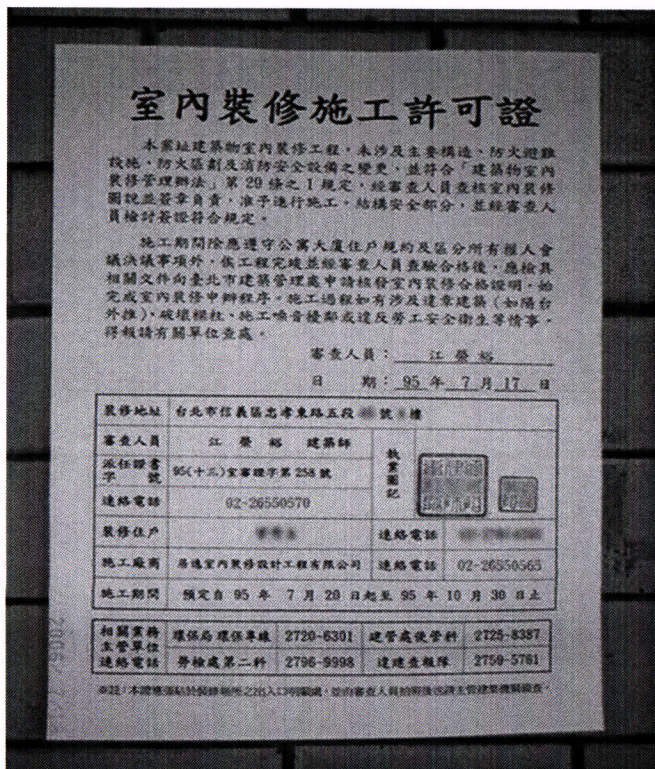 室內裝修施工許可證
本案址建築物室內裝修工程，未涉及主要構造、防火避難
設施，防火區劃及消防安全設備之變更，並符合「建築物室內
裝修管理辦法」第 29 條之 1 規定，經審查人員查核室內裝修
圖說並簽章負責，准予進行施工，結構安全部分，並經審查人
員檢討簽證符合規定。
施工期間除應遵守公寓大廈住戶規約及區分所有權人會
議決議事項外，俟工程完竣並經審查人員查驗合格後，應檢具
相關文件向臺北市建築管理處申請核發室內裝修合格證明，始
完成室內裝修申辦程序。施工過程如有涉及違章建築（如陽台
外推），破壞樑柱、施工噪音擾鄰或違反勞工安全衛生等情事，
得報請有關單位查處。
審查人員： 江 榮 裕
日 期：95 年 7 月 17 日
裝修地址 台北市信義區忠孝東路五段 號 樓
審查人員 江 榮 裕 建築師 執業圖記
派任證書字號 95(十三)室審證字第 258 號
連絡電話 02-26550570
裝修住戶 連絡電話
施工廠商 居逸室內裝修設計工程有限公司 連絡電話 02-26550565
施工期間 預定自 95 年 7 月 20 日起至 95 年 10 月 30 日止
相關業務主管單位連絡電話 環保局環保專線 2720-6301 建管處使管科 2725-8387
勞檢處第二科 2796-9998 違建查報隊 2759-5761
※註：本證應張貼於裝修場所之出入口明顯處，並由審查人員拍照後送請主管建築機關備查。